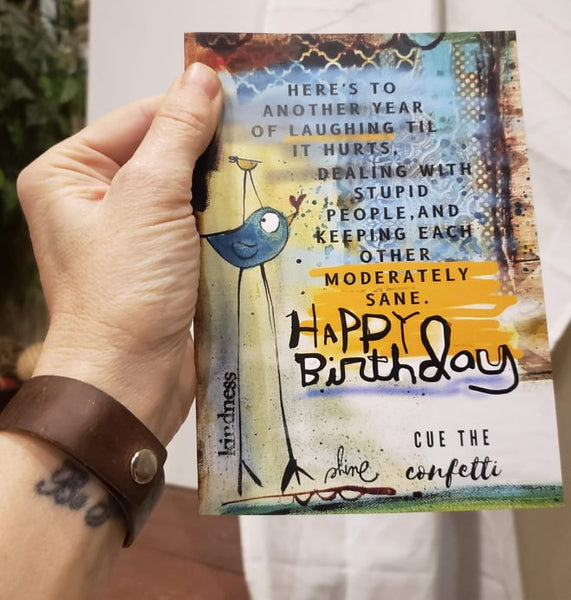 HERE'S TO
ANOTHER YEAR
OF LAUGHING TIL
IT HURTS,
DEALING WITH
STUPID
PEOPLE,AND
KEEPING EACH
OTHER
MODERATELY
SANE.
HAPPY
Birthday
kindness
shine
CUE THE
confetti